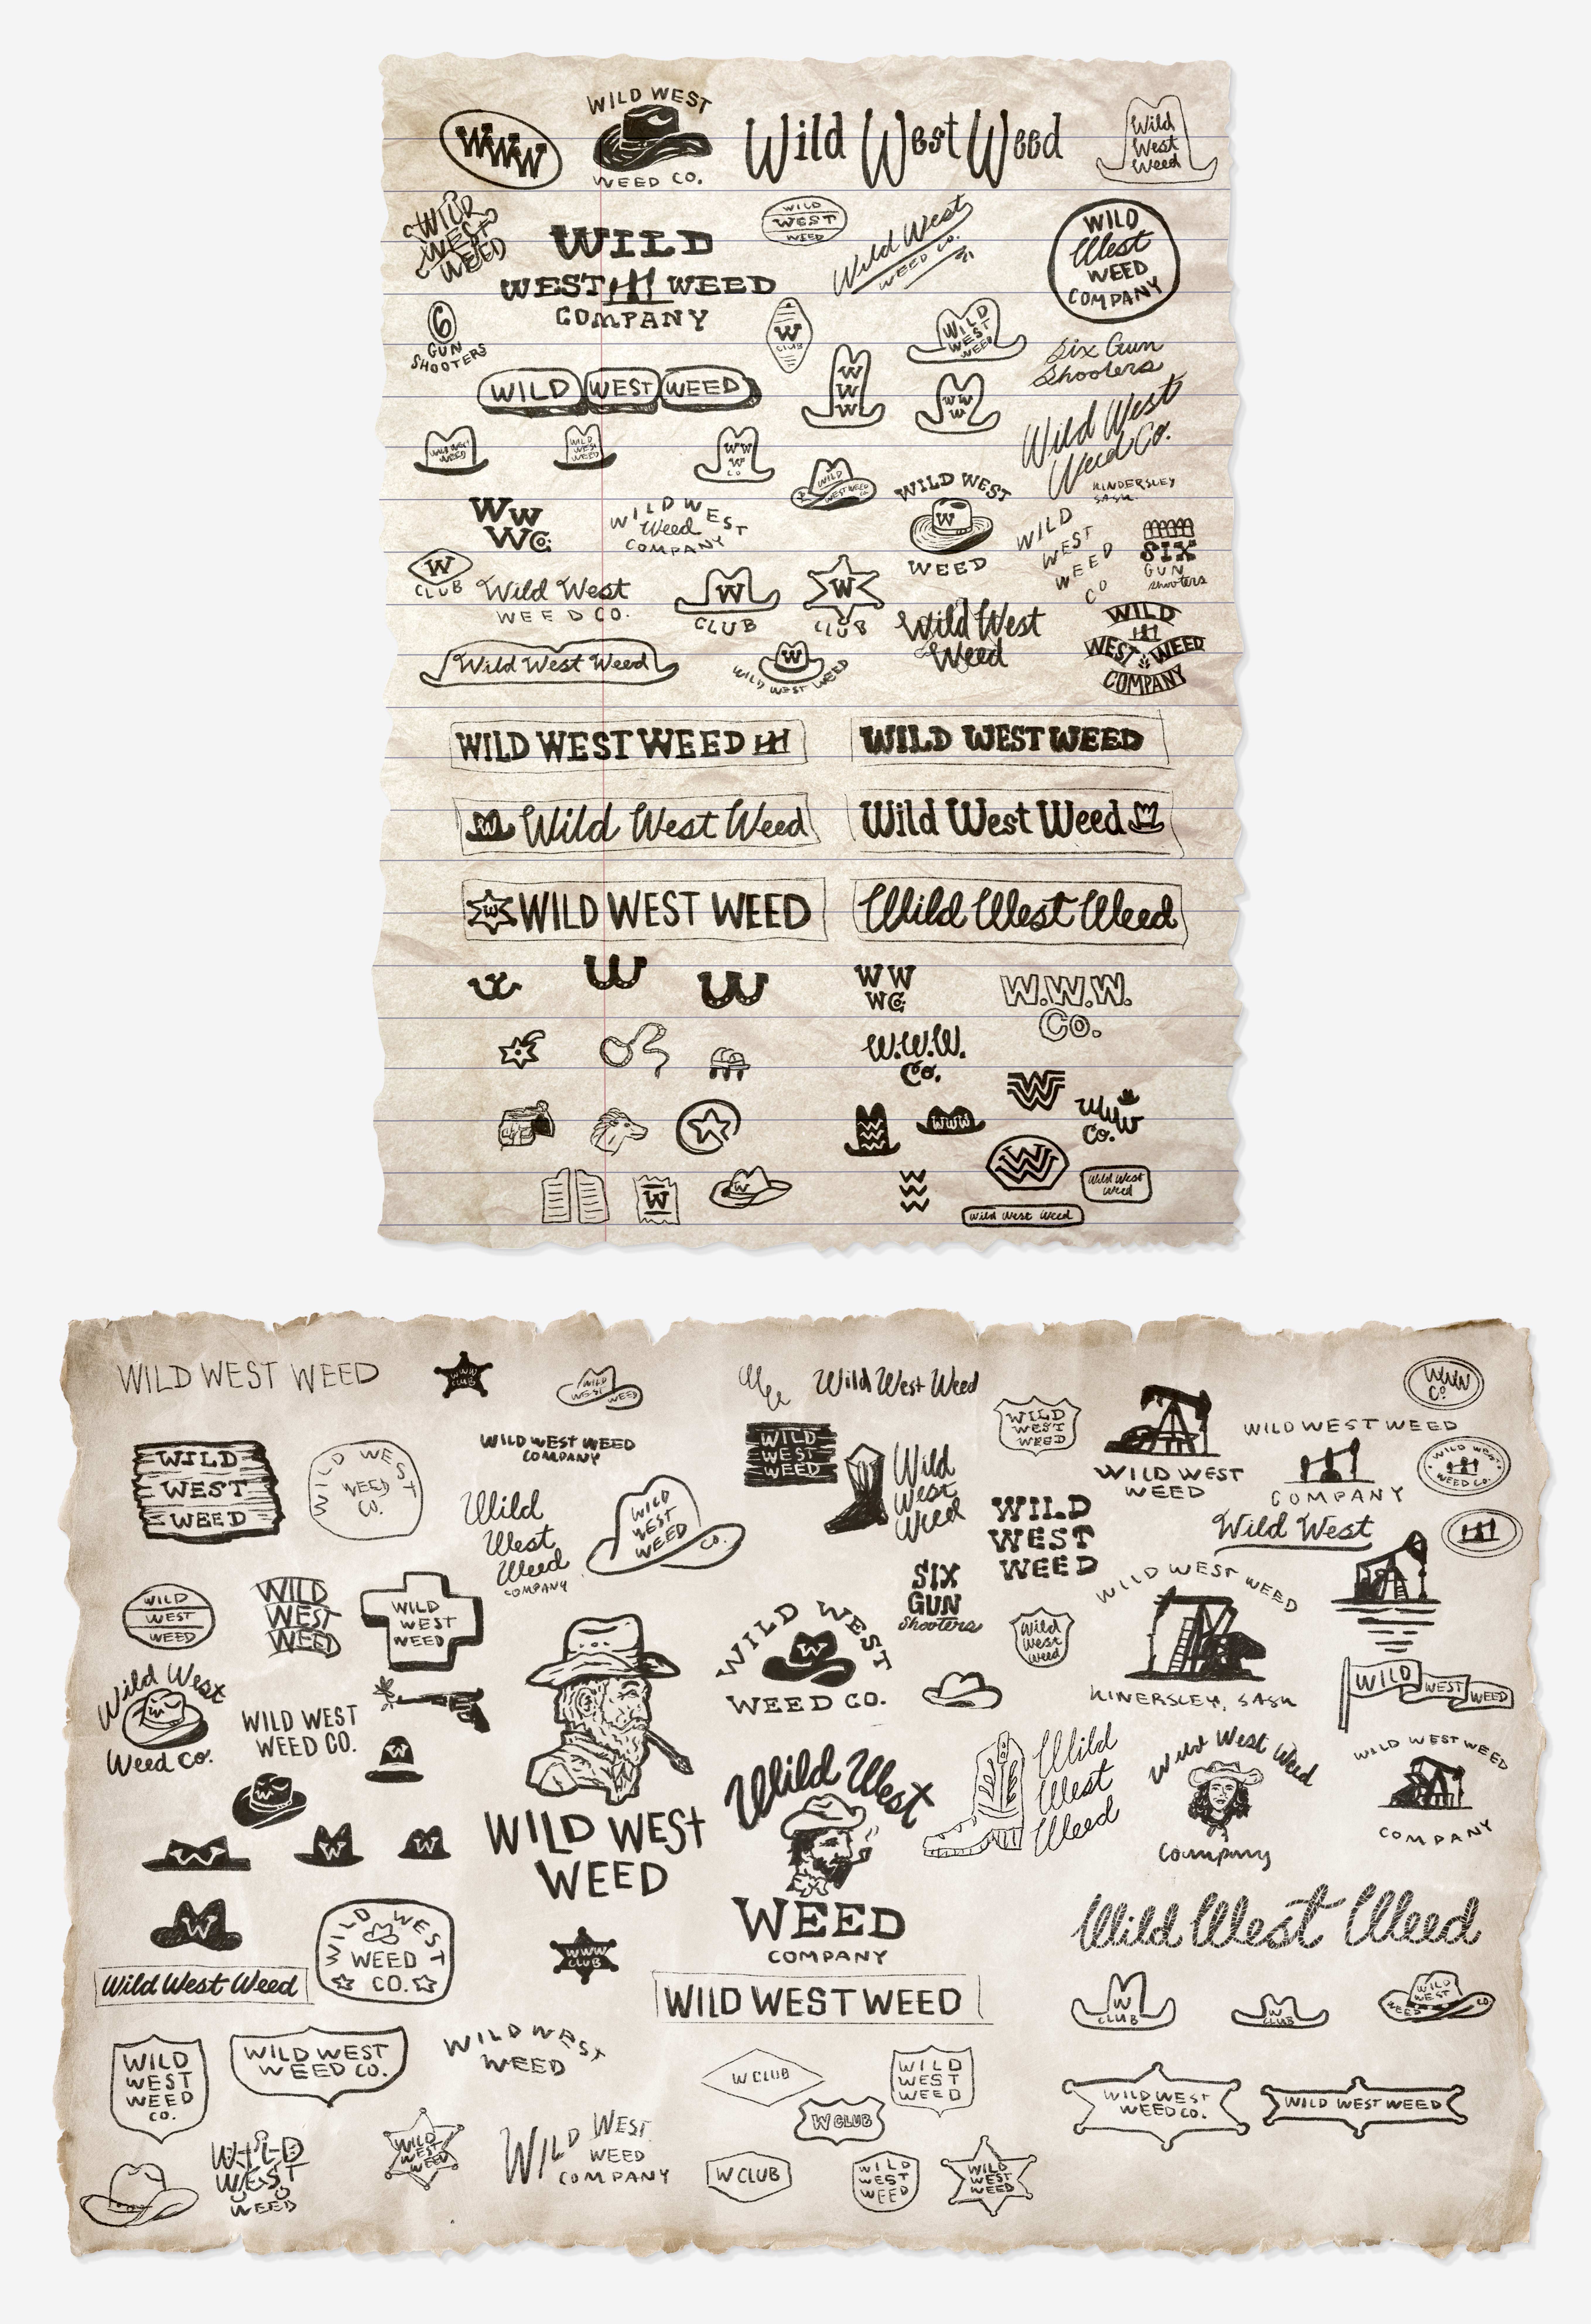 WWW
WILD WEST
WEED CO.
Wild West Weed
Wild
West
Weed
WILD
WEST
WEED
WILD
WEST WEED
COMPANY
WILD
WEST
WEED
Wild West
WEED CO.
WILD
West
WEED
COMPANY
6
GUN
SHOOTERS
W
CLUB
WILD
WEST
WEED
Six Gun
Shooters
WILD WEST WEED
W
W
W
WW
W
Wild West
Weed Co.
KINDERSLEY
SASK.
WILD WEST
WEED
WILD
WEST
WEED
WW
W
CO
WILD
WEST WEED
CO
WILD WEST
W
WEED
WW
W Co.
WILD WEST
Weed
COMPANY
WILD
WEST
WEED
CO
SIX
GUN
shooters
W
CLUB
Wild West
WEED CO.
W
CLUB
W
CLUB
Wild West
Weed
WILD
WEST WEED
COMPANY
Wild West Weed
W
WILD WEST WEED
WILD WEST WEED
WILD WEST WEED
W Wild West Weed
Wild West Weed
W WILD WEST WEED
Wild West Weed
WW
W Co.
W.W.W.
Co.
W.W.W.
Co.
W
WWW
Co.
WWW
W
W
W
Wild West
Weed
Wild West Weed
WILD WEST WEED
WWW
CLUB
WILD
WEST WEED
Wild West Weed
WILD
WEST
WEED
WWW
CO
WILD
WEST
WEED
WILD WEST
WEED
CO.
WILD WEST WEED
COMPANY
WILD
WEST
WEED
Wild
West
Weed
WILD WEST
WEED
WILD WEST WEED
COMPANY
WILD WEST
WEED CO.
Wild
West
Weed
COMPANY
WILD
WEST
WEED
CO.
WILD
WEST
WEED
Wild West
WILD
WEST
WEED
WILD
WEST
WEED
WILD
WEST
WEED
SIX
GUN
Shooters
Wild
West
Weed
WILD WEST WEED
KINERSLEY, SASK
WILD WEST WEED
Wild West
W
Weed Co.
WILD WEST
WEED CO.
W
W
WILD WEST
W
WEED CO.
W
W
W
WILD WEST
WEED
Wild West
WEED
COMPANY
Wild
West
Weed
Wild West Weed
Company
WILD WEST WEED
COMPANY
W
WILD WEST
WEED
CO.
WWW
CLUB
Wild West Weed
Wild West Weed
WILD WEST WEED
W
CLUB
W
CLUB
WILD
WEST
WEED CO
WILD
WEST
WEED
CO.
WILD WEST
WEED CO.
WILD WEST
WEED
W CLUB
WILD
WEST
WEED
W CLUB
WILD WEST
WEED CO.
WILD WEST WEED
WILD
WEST
WEED
WILD
WEST
WEED
WILD WEST
WEED
COMPANY
W CLUB
WILD
WEST
WEED
WILD
WEST
WEED